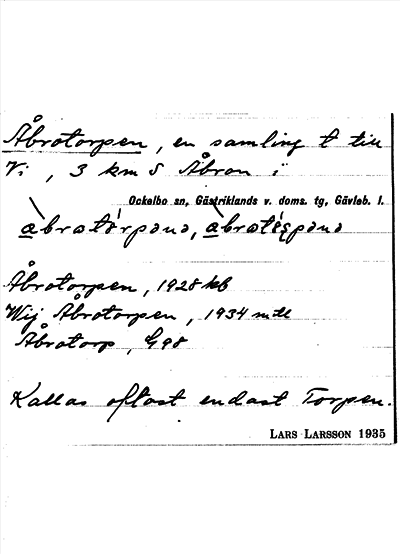 Åbrotorpen, en samling t till
Vi, 3 km S Åbron i
Ockelbo sn, Gästriklands v. doms. tg, Gävleb. l.
Åbrotorpen, 1928 kb
Wij Åbrotorpen, 1934 mtl
Åbrotorp, G98
Kallas oftast endast Torpen.
LARS LARSSON 1935